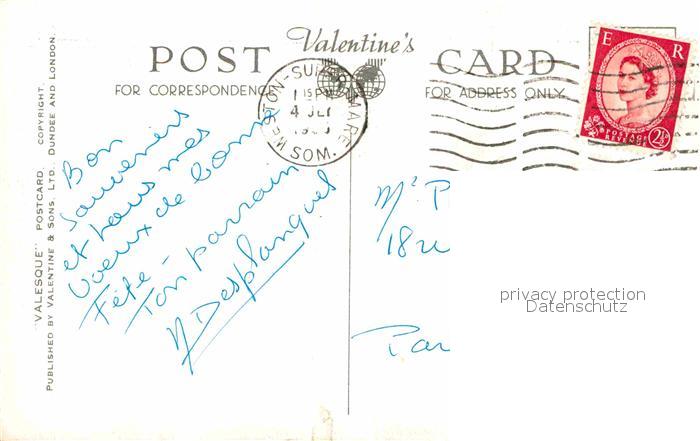 POST Valentine's CARD
FOR CORRESPONDENCE FOR ADDRESS ONLY
"VALESQUE" POSTCARD. COPYRIGHT.
PUBLISHED BY VALENTINE & SONS, LTD. DUNDEE AND LONDON.
WESTON-SUPER-MARE
115 PM
4 JLY
SOM.
E R
POSTAGE
REVENUE
2½D
Bon
Souvenirs
et tous mes
Voeux de bonne
Fête -
Ton parrain
Desplanques
Mr P
18 
Par
privacy protection
Datenschutz